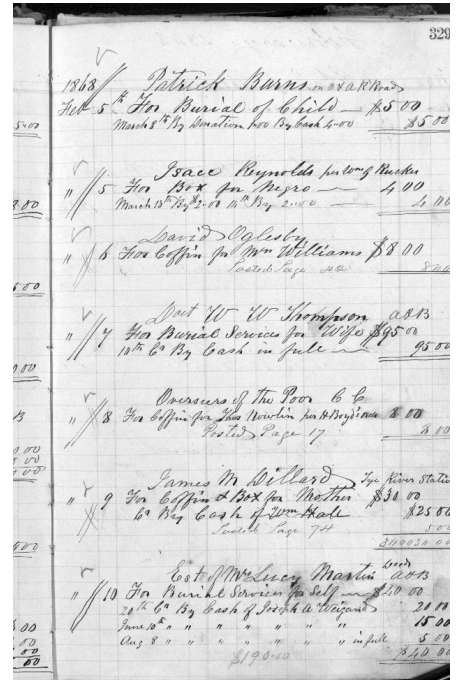 329
1868 Patrick Burns on O & A R Road
Feb 5th For Burial of Child $5 00
March 8th By Donation 1.00 By Cash 4.00 $5 00
Isaac Reynolds per Wm Rucker
" 5 For Box for Negro 4 00
March 13th By $2.00 14th By 2.00 4 00
David Oglesby
" 6 For Coffin for Wm Williams $8 00
Posted Page 42 8 00
Doct W W Thompson A&B
" 7 For Burial Services for Wife $95 00
10th Cr By Cash in full 95 00
Overseers of the Poor C C
" 8 For Coffin for Thos Nowlin per H Boyd 8 00
Posted Page 17 8 00
James M Dillard Tye River Station
" 9 For Coffin & Box for Mother $30 00
Cr By Cash of Wm Hale $25 00
Posted Page 74 5 00
Est of Mrs Lucy Martin A&B
" 10 For Burial Services for Self $40 00
20th Cr By Cash of Joseph A Weigand 20 00
June 10th " " " " " " " 15 00
Aug 8 " " " " " " " in full 5 00
$190.00 $40 00